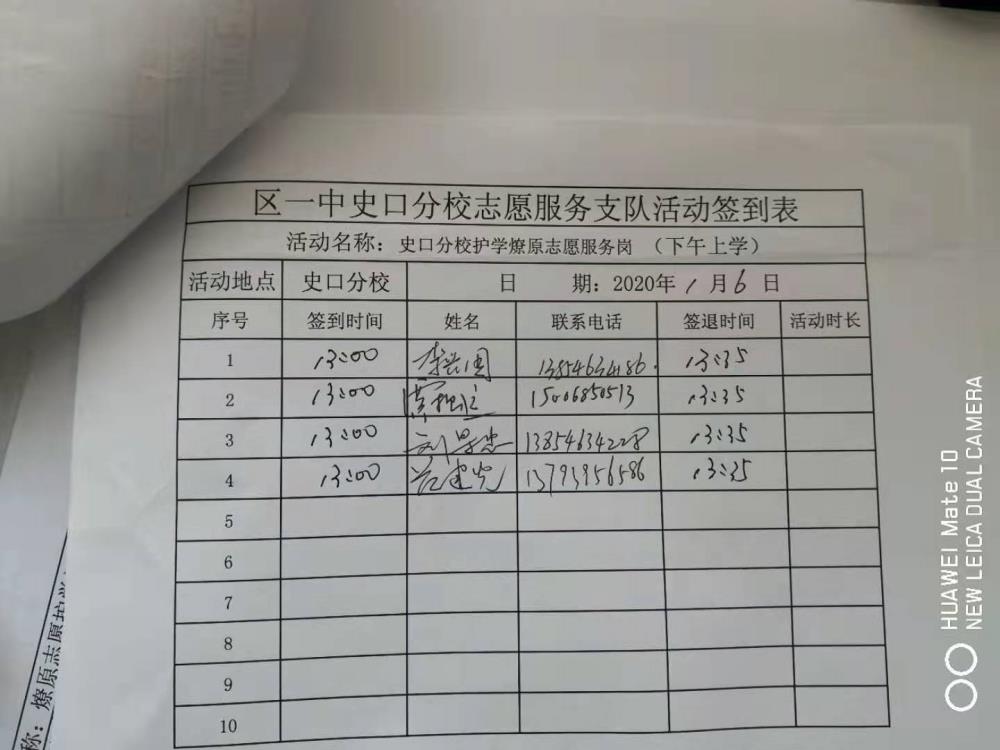 区一中史口分校志愿服务支队活动签到表
活动名称：史口分校护学燎原志愿服务岗 （下午上学）
活动地点 史口分校 日 期：2020年1月6日
序号 签到时间 姓名 联系电话 签退时间 活动时长
1 13:00 李兴国 13854634186 13:35
2 13:00 15006850513 13:35
3 13:00 刘景忠 13854634228 13:35
4 13:00 建光 13793956586 13:35
5
6
7
8
9
10
称：燎原志愿护学
HUAWEI Mate 10
NEW LEICA DUAL CAMERA